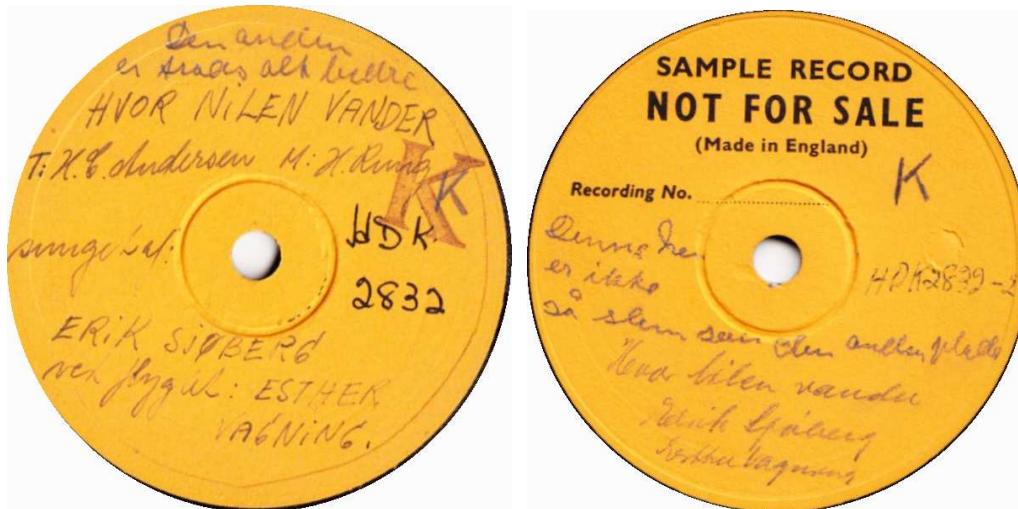 Den anden
er trods alt bedre
HVOR NILEN VANDER
T: H.C. Andersen M: H. Rung
K
K
HDK
2832
sunget af:
ERIK SJØBERG
ved flygel: ESTHER
VAGNING.
SAMPLE RECORD
NOT FOR SALE
(Made in England)
K
Recording No.
Denne her
er ikke
HDK2832-2
så slem som den anden plade
Hvor Nilen vander
Erik Sjøberg
Esther Vagning